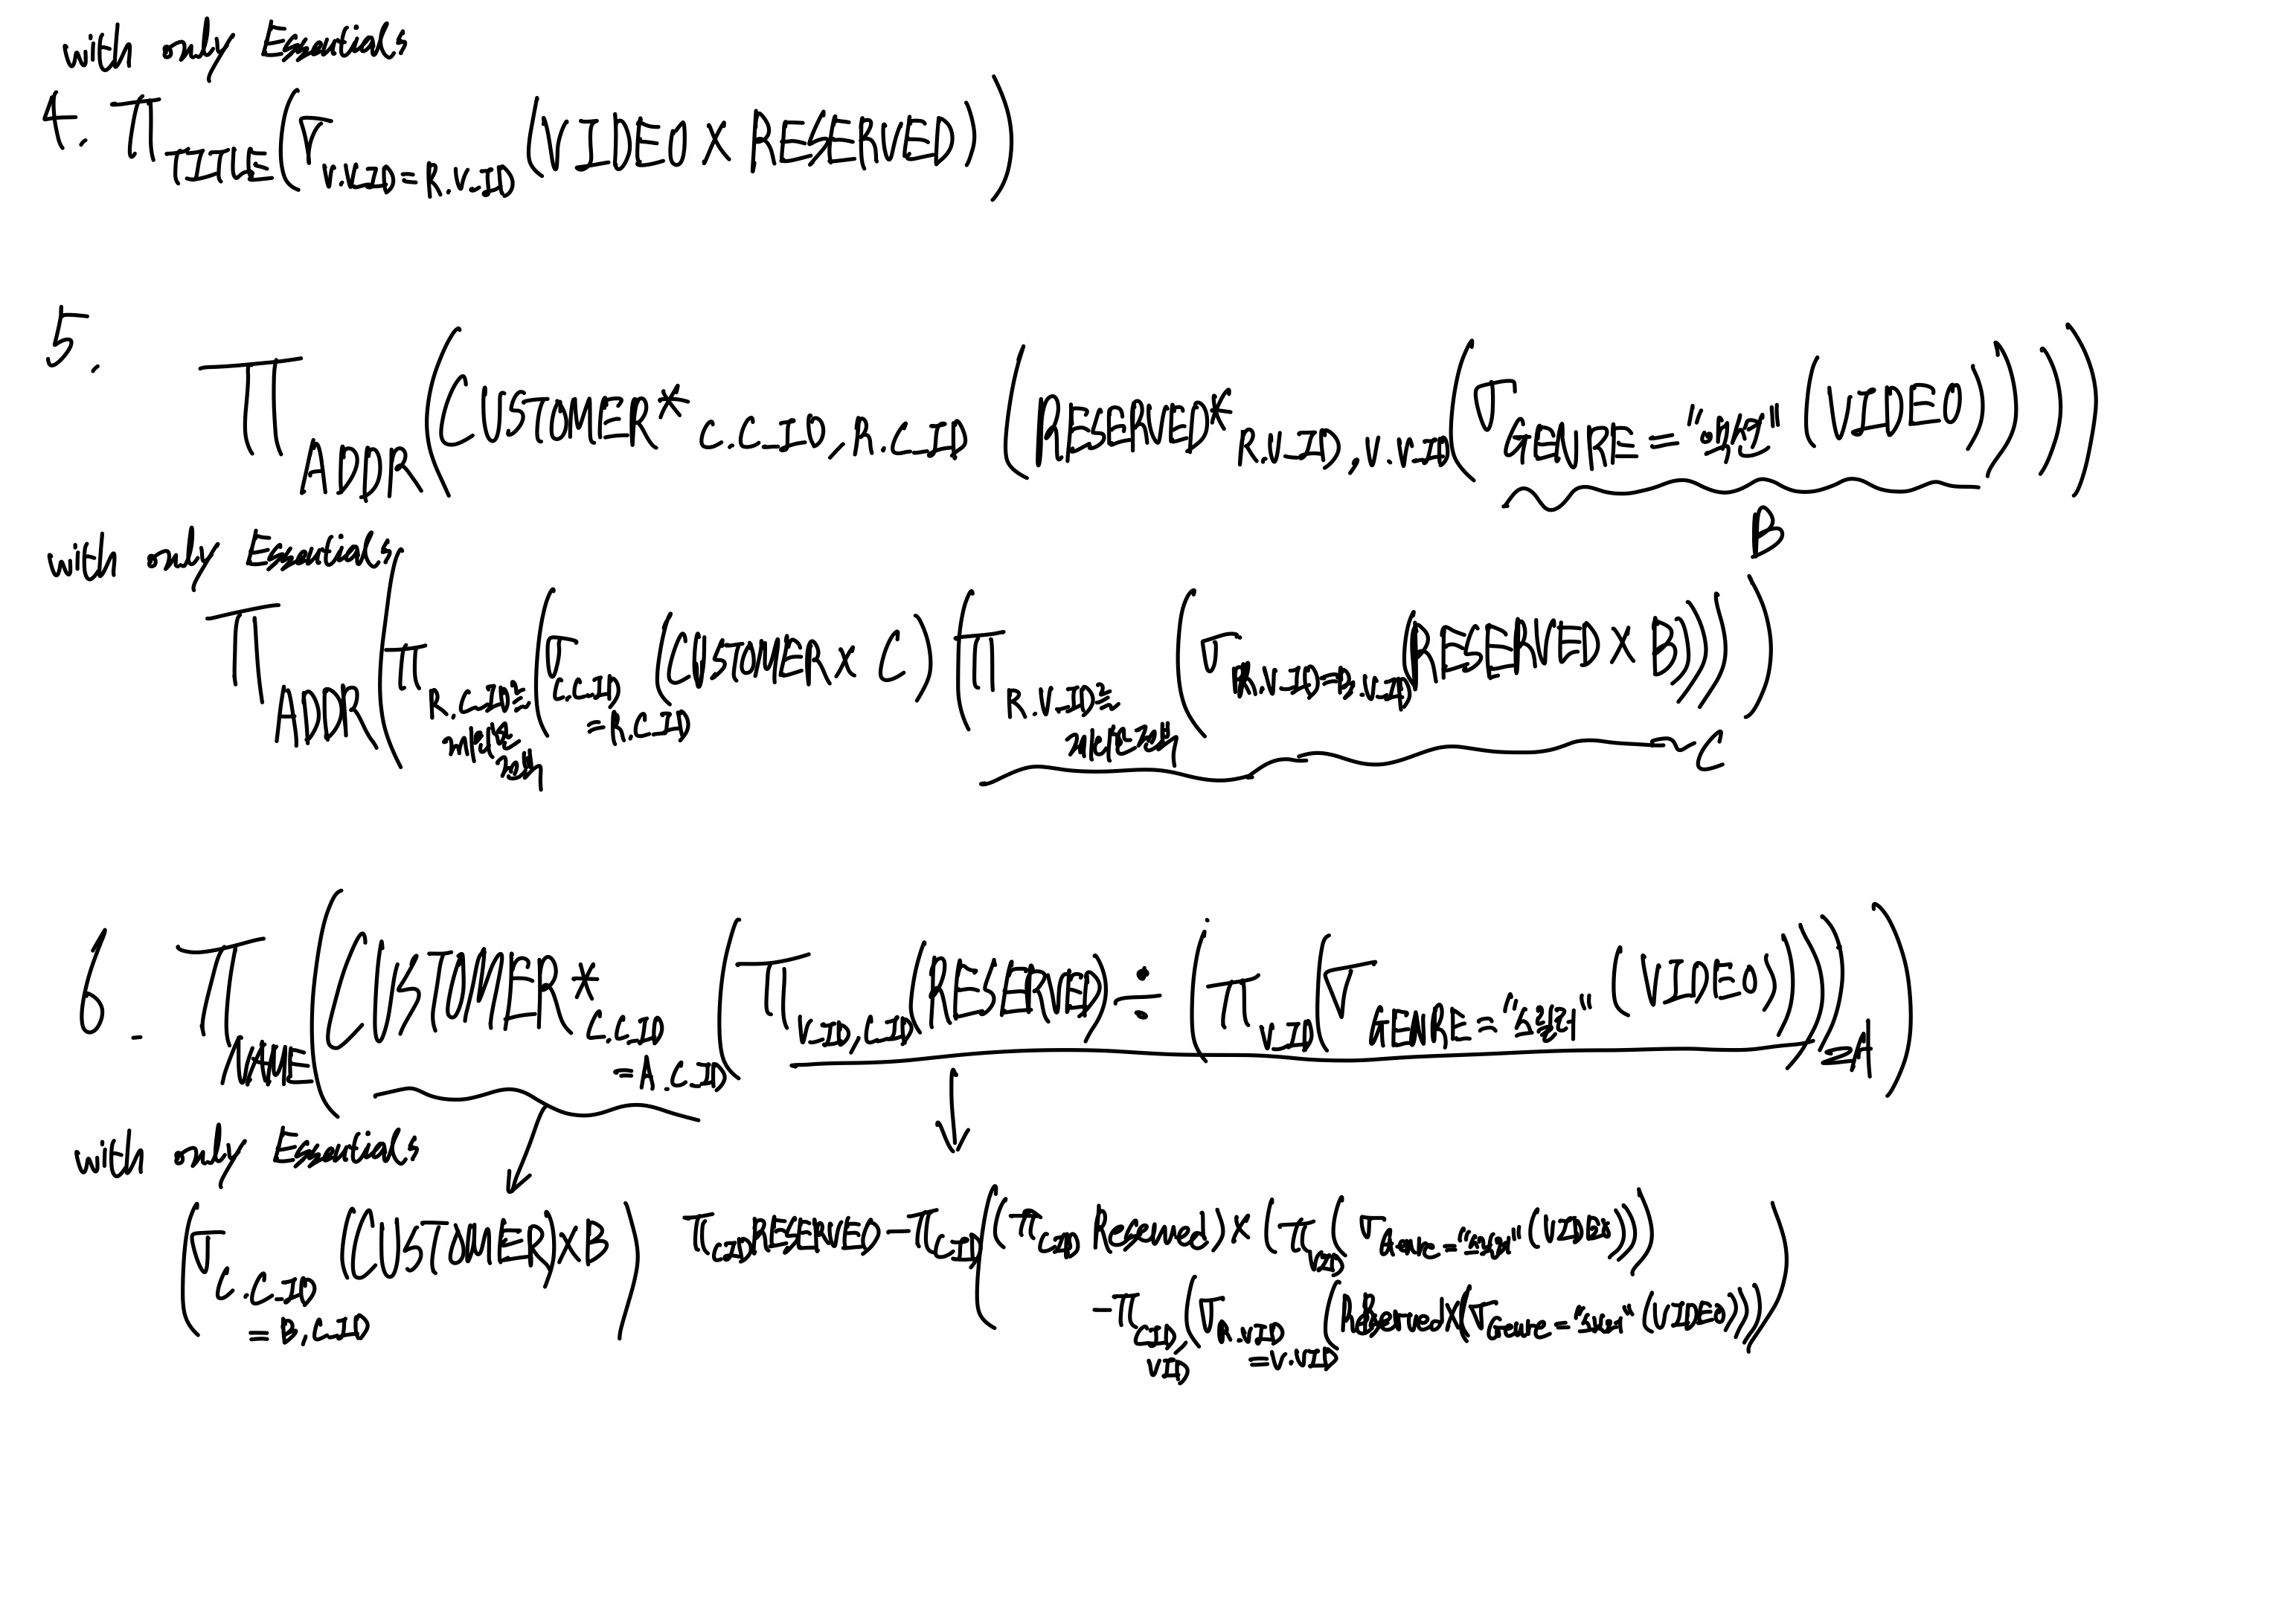 with only Essentials
4. π TITLE (σ V.V_ID=R.V_ID (VIDEO X RESERVED))
5. π ADDR (CUSTOMER* C.C_ID, R.C_ID (RESERVED* R.V_ID, V.V_ID (σ GENRE="액션" (VIDEO))))
B
with only Essentials
π ADDR (π R.C_ID를 제외한 전부 (σ C.C_ID =R.C_ID (CUSTOMER X C) (π R.V_ID를 제외한 전부 (σ R.V_ID=B.V_ID (RESERVED X B)))) C
6. π NAME (CUSTOMER* C.C_ID =A.C_ID (π V_ID, C_ID (RESERVED) ÷ (π V_ID (σ GENRE="스릴러" (VIDEO)))) =A)
with only Essentials
(σ C.C_ID =B.C_ID (CUSTOMER) X B) π C_ID RESERVED - π C_ID ((π C_ID Reserved) X (π V_ID (σ Genre="스릴러" (VIDEO)))
- π C_ID, V_ID (σ R.V_ID =V.V_ID (Reserved X (σ Genre="스릴러" (VIDEO)))))